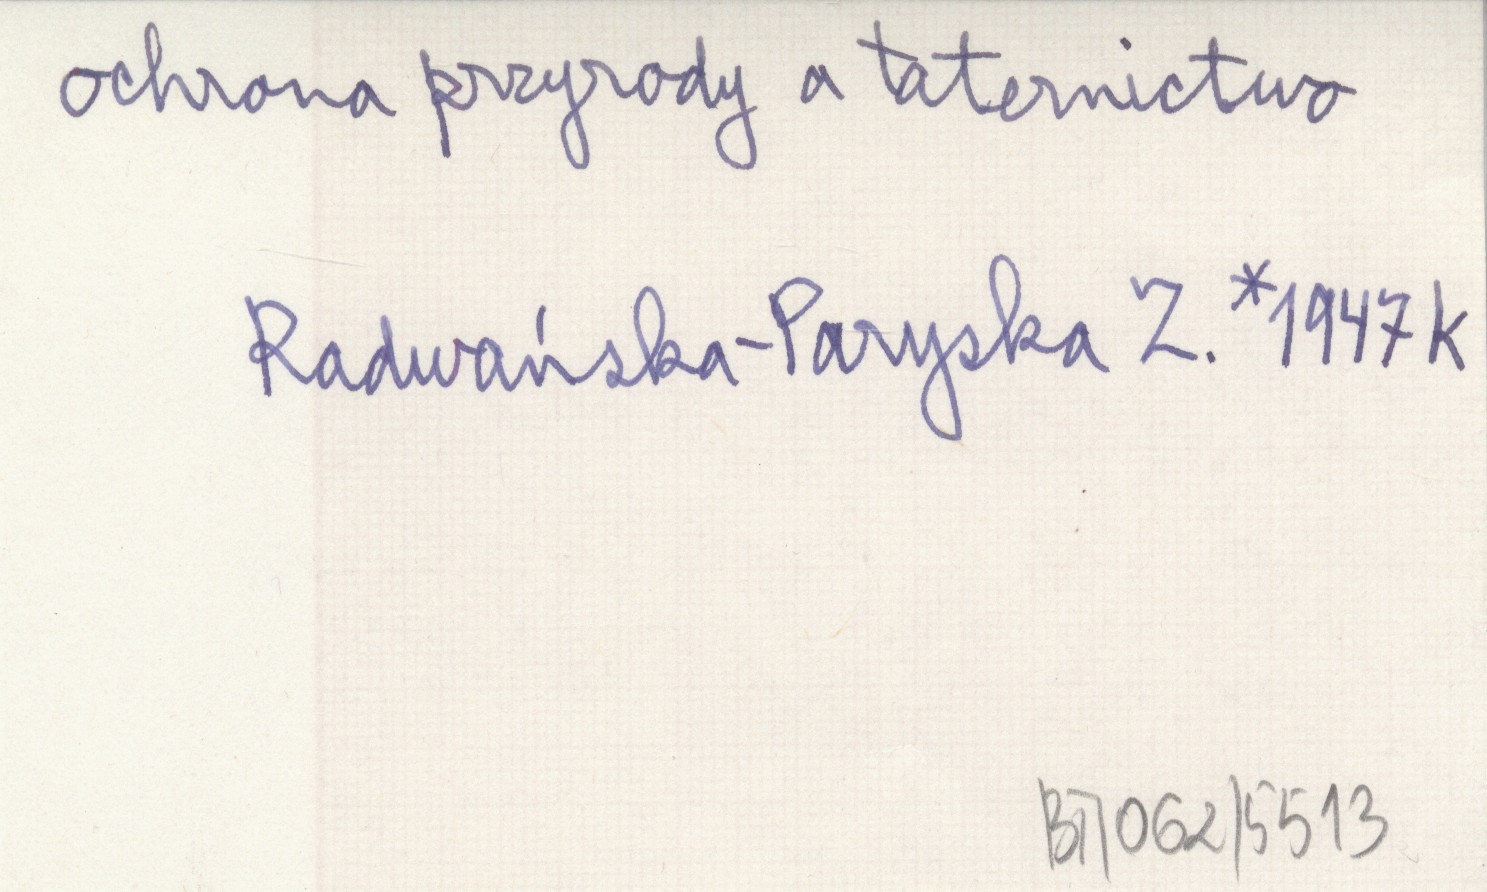 ochrona przyrody a taternictwo
Radwańska-Paryska Z. *1947k
BT/062/5513